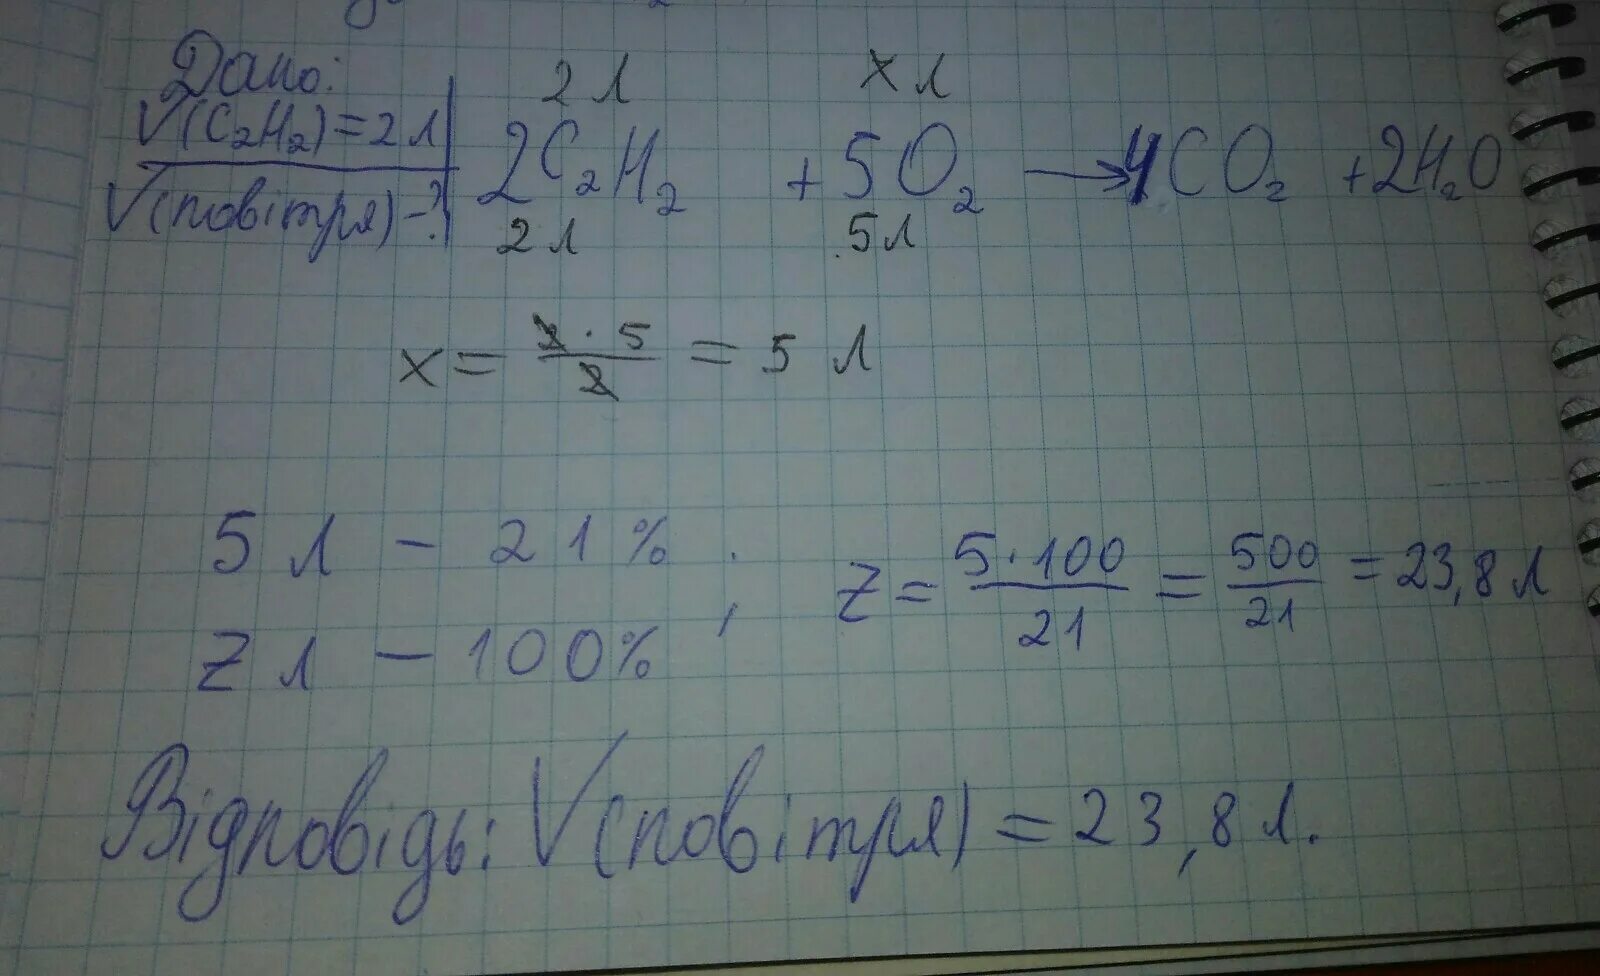 Дано:
V(C₂H₂)=2л
V(повітря)-?
2л xл
2C₂H₂ + 5O₂ → 4CO₂ + 2H₂O
2л 5л
x = 2·5/2 = 5 л
5 л - 21% ;
z л - 100%
z = 5·100/21 = 500/21 = 23,8 л
Відповідь: V(повітря) = 23,8 л.